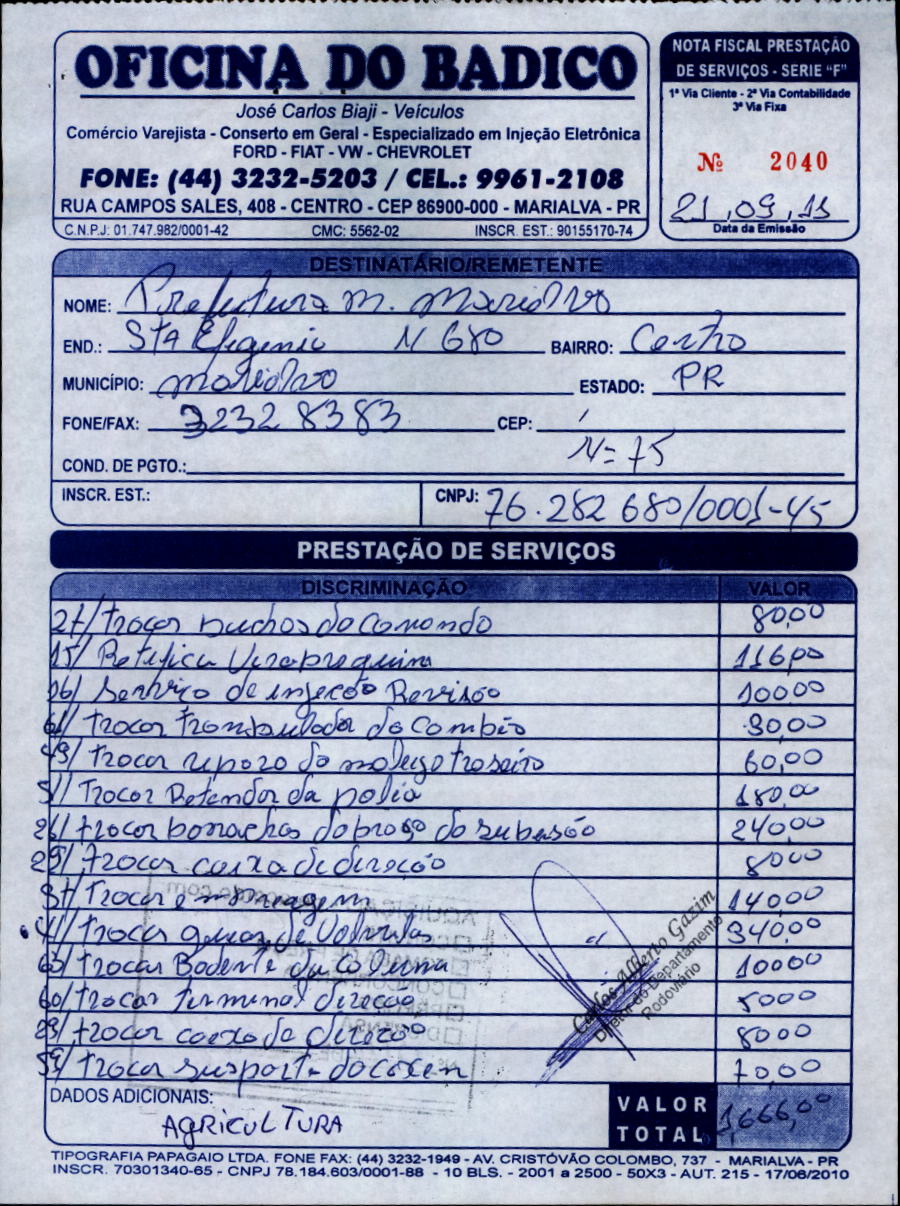 OFICINA DO BADICO
José Carlos Biaji - Veículos
Comércio Varejista - Conserto em Geral - Especializado em Injeção Eletrônica
FORD - FIAT - VW - CHEVROLET
FONE: (44) 3232-5203 / CEL.: 9961-2108
RUA CAMPOS SALES, 408 - CENTRO - CEP 86900-000 - MARIALVA - PR
C.N.P.J.: 01.747.982/0001-42 CMC: 5562-02 INSCR. EST.: 90155170-74
NOTA FISCAL PRESTAÇÃO
DE SERVIÇOS - SERIE "F"
1ª Via Cliente - 2ª Via Contabilidade
3ª Via Fixa
Nº 2040
21,09,11
Data da Emissão
DESTINATÁRIO/REMETENTE
NOME: Prefeitura M. Marialva
END.: Sta Efigenia N 680 BAIRRO: Centro
MUNICÍPIO: Marialva ESTADO: PR
FONE/FAX: 3232 8383 CEP:
COND. DE PGTO.: N=75
INSCR. EST.: CNPJ: 76.282 680/0001-45
PRESTAÇÃO DE SERVIÇOS
DISCRIMINAÇÃO VALOR
27/ trocar buchas do Comando 80,00
15/ Retifica Virabrequim 116,00
26/ Serviço de injeção Revisão 100,00
61/ trocar trambulador do Cambio 30,00
49/ Trocar reparo do traseiro 60,00
51/ Trocar Retentor da polia 180,00
26/ trocar borrachas do braço do 240,00
29/ trocar caixa de direção 80,00
37/ Trocar 140,00
41/ Trocar guias de Valvulas 340,00
Trocar da Coluna 100,00
60/ trocar terminal direção 50,00
29/ trocar caixa de direção 80,00
59/ trocar suporte do 70,00
Carlos Alberto Gazim
Diretor do Departamento
Rodoviário
DADOS ADICIONAIS:
AGRICULTURA
VALOR TOTAL 1.666,00
TIPOGRAFIA PAPAGAIO LTDA. FONE FAX: (44) 3232-1949 - AV. CRISTÓVÃO COLOMBO, 737 - MARIALVA - PR
INSCR. 70301340-65 - CNPJ 78.184.603/0001-88 - 10 BLS. - 2001 a 2500 - 50X3 - AUT. 215 - 17/06/2010